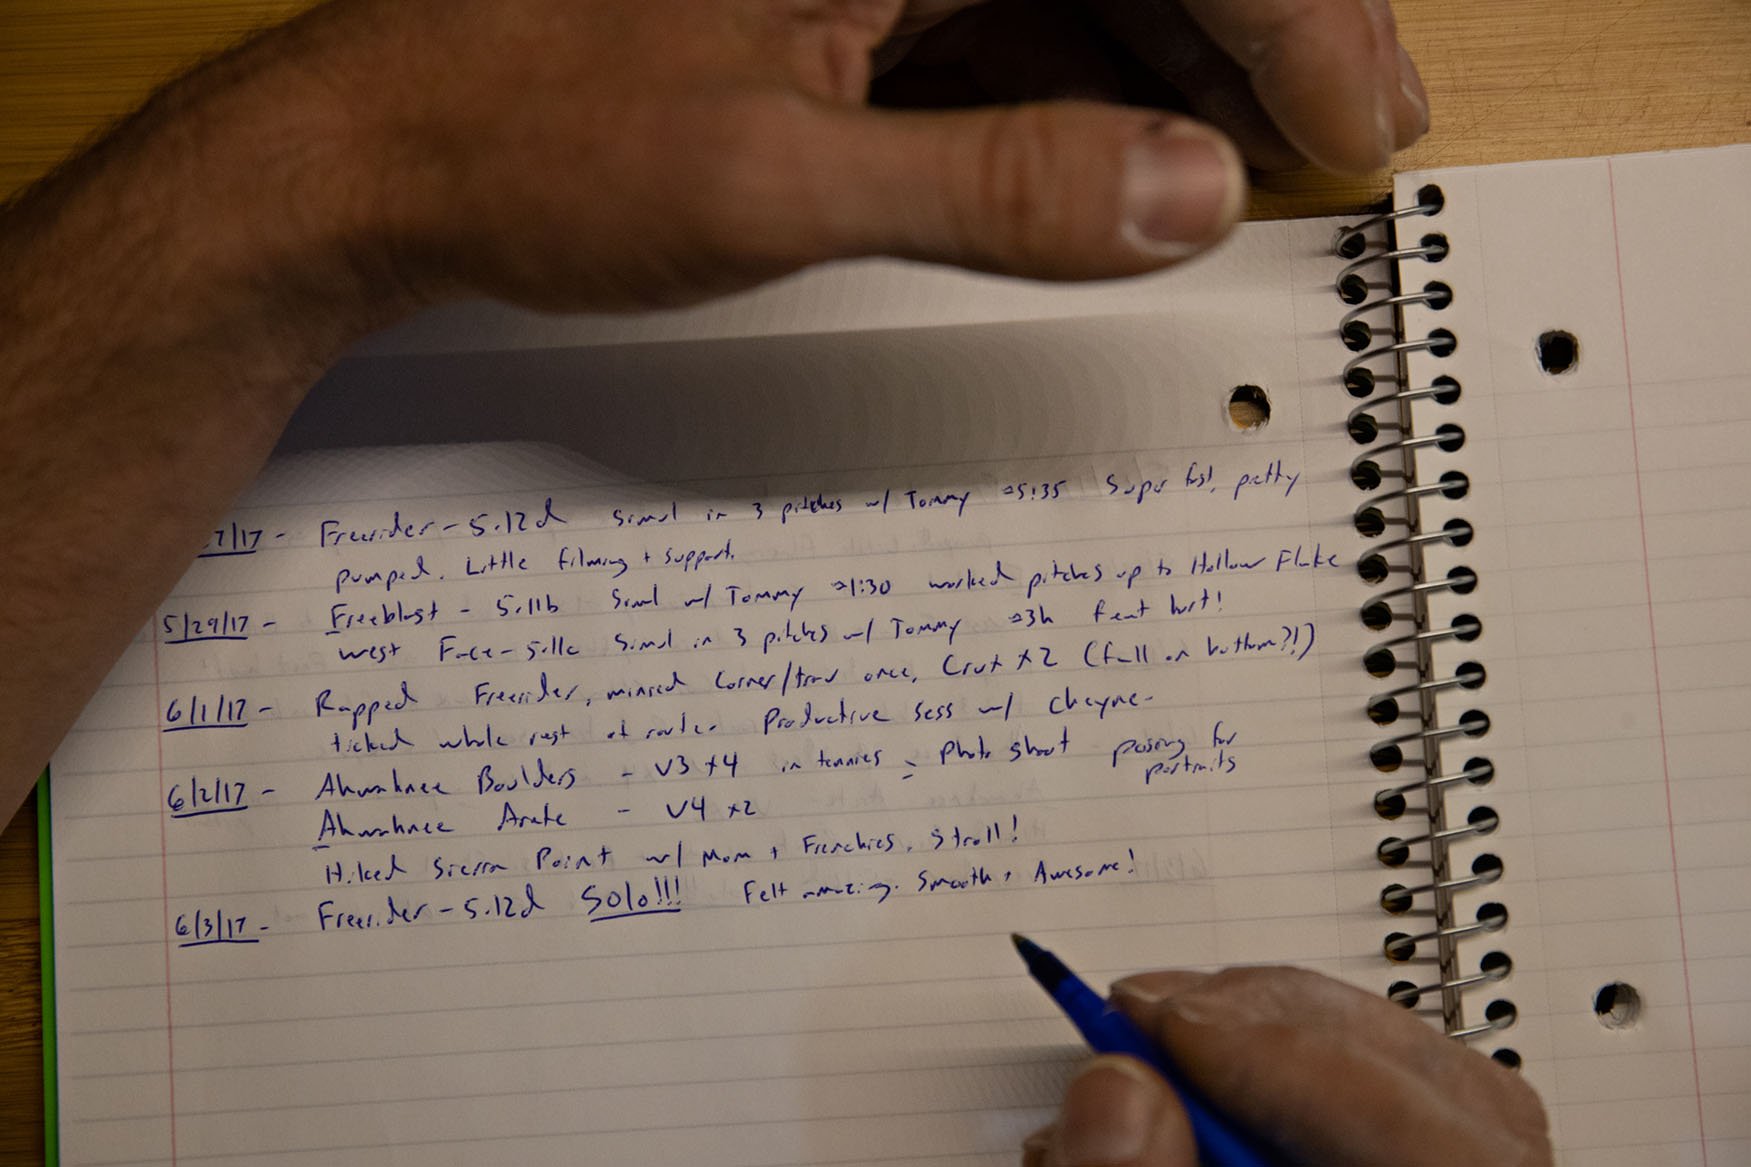 27/17 - Freerider - 5.12d Simul in 3 pitches w/ Tommy ≈5:35 Super fast, pretty
pumped. Little filming + support.
5/29/17 - Freeblast - 5.11b Simul w/ Tommy ≈1:30 worked pitches up to Hollow Flake
West Face - 5.11c Simul in 3 pitches w/ Tommy ≈3h feet hurt!
6/1/17 - Rapped Freerider, corner/trav once, Crux x2 (fall on bottom?!)
ticked whole rest of route. Productive sess w/ Cheyne.
6/2/17 - Ahwahnee Boulders - V3 x4 in tennies - photo shoot posing for
portraits
Ahwahnee Arete - V4 x2
Hiked Sierra Point w/ Mom + Frenchies. Stroll!
6/3/17 - Freerider - 5.12d Solo!!! Felt amazing. Smooth + Awesome!